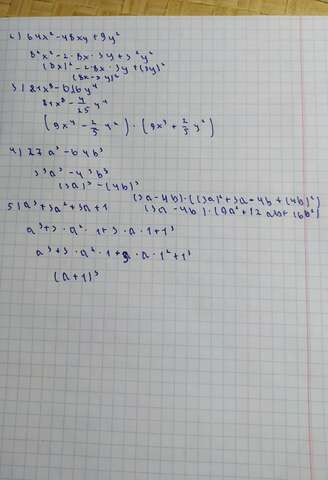 2) 64x² - 48xy + 9y²
8²x² - 2 · 8x · 3y + 3²y²
(8x)² - 2 · 8x · 3y + (3y)²
(8x - 3y)²
3) 81x⁸ - 0,16y⁴
81x⁸ - 4/25 y⁴
(9x⁴ - 2/5 y²) · (9x⁴ + 2/5 y²)
4) 27a³ - 64b³
3³a³ - 4³b³
(3a)³ - (4b)³
(3a - 4b) · ((3a)² + 3a · 4b + (4b)²)
(3a - 4b) · (9a² + 12ab + 16b²)
5) a³ + 3a² + 3a + 1
a³ + 3 · a² · 1 + 3 · a · 1 + 1³
a³ + 3 · a² · 1 + 3 · a · 1² + 1³
(a + 1)³